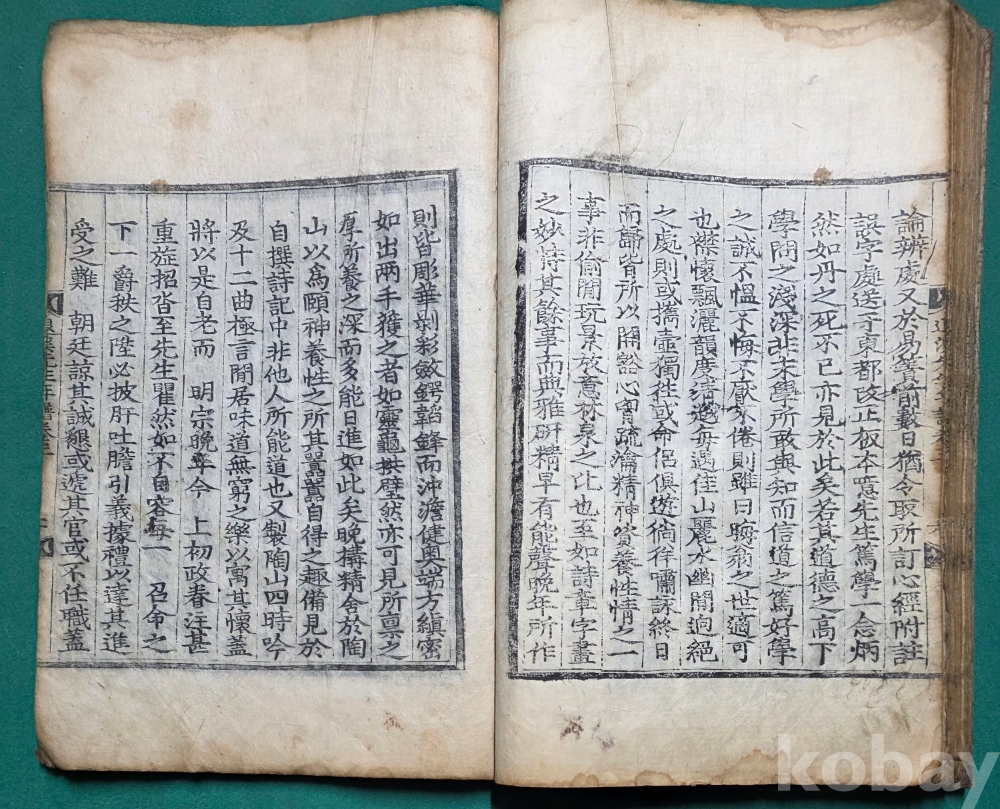 論辨處又於易簀前數日猶令取所訂心經附註
誤字處送于東都改正板本噫先生篤學一念炳
然如丹之死不已亦見於此矣若其道德之高下
學問之淺深非末學所敢與知而信道之篤好學
之誠不慍不悔不厭不倦則雖曰晦翁之世適可
也襟懷飄灑韻度淸邈每遇佳山麗水幽閒逈絕
之處則或攜壺獨往或命侶俱遊徜徉嘯詠終日
而歸皆所以開豁心胷疏瀹精神資養性情之一
事非偷閒玩景放意林泉之比也至如詩章字畫
之妙特其餘事而典雅硏精早有能聲晚年所作
則皆彫華剝彩斂鍔韜鋒而沖澹健奧端方縝密
如出兩手獲之者如靈龜拱璧然亦可見所禀之
厚所養之深而多能日進如此矣晚構精舍於陶
山以爲頤神養性之所其囂囂自得之趣備見於
自撰詩記中非他人所能道也又製陶山四時吟
及十二曲極言閒居味道無窮之樂以寓其懷蓋
將以是自老而 明宗晚年今 上初政眷注甚
重旌招沓至先生瞿然如不自容每一 召命之
下一爵秩之陞必披肝吐膽引義據禮以達其進
受之難 朝廷諒其誠懇或遞其官或不任職蓋
退溪先生年譜卷三
kobay